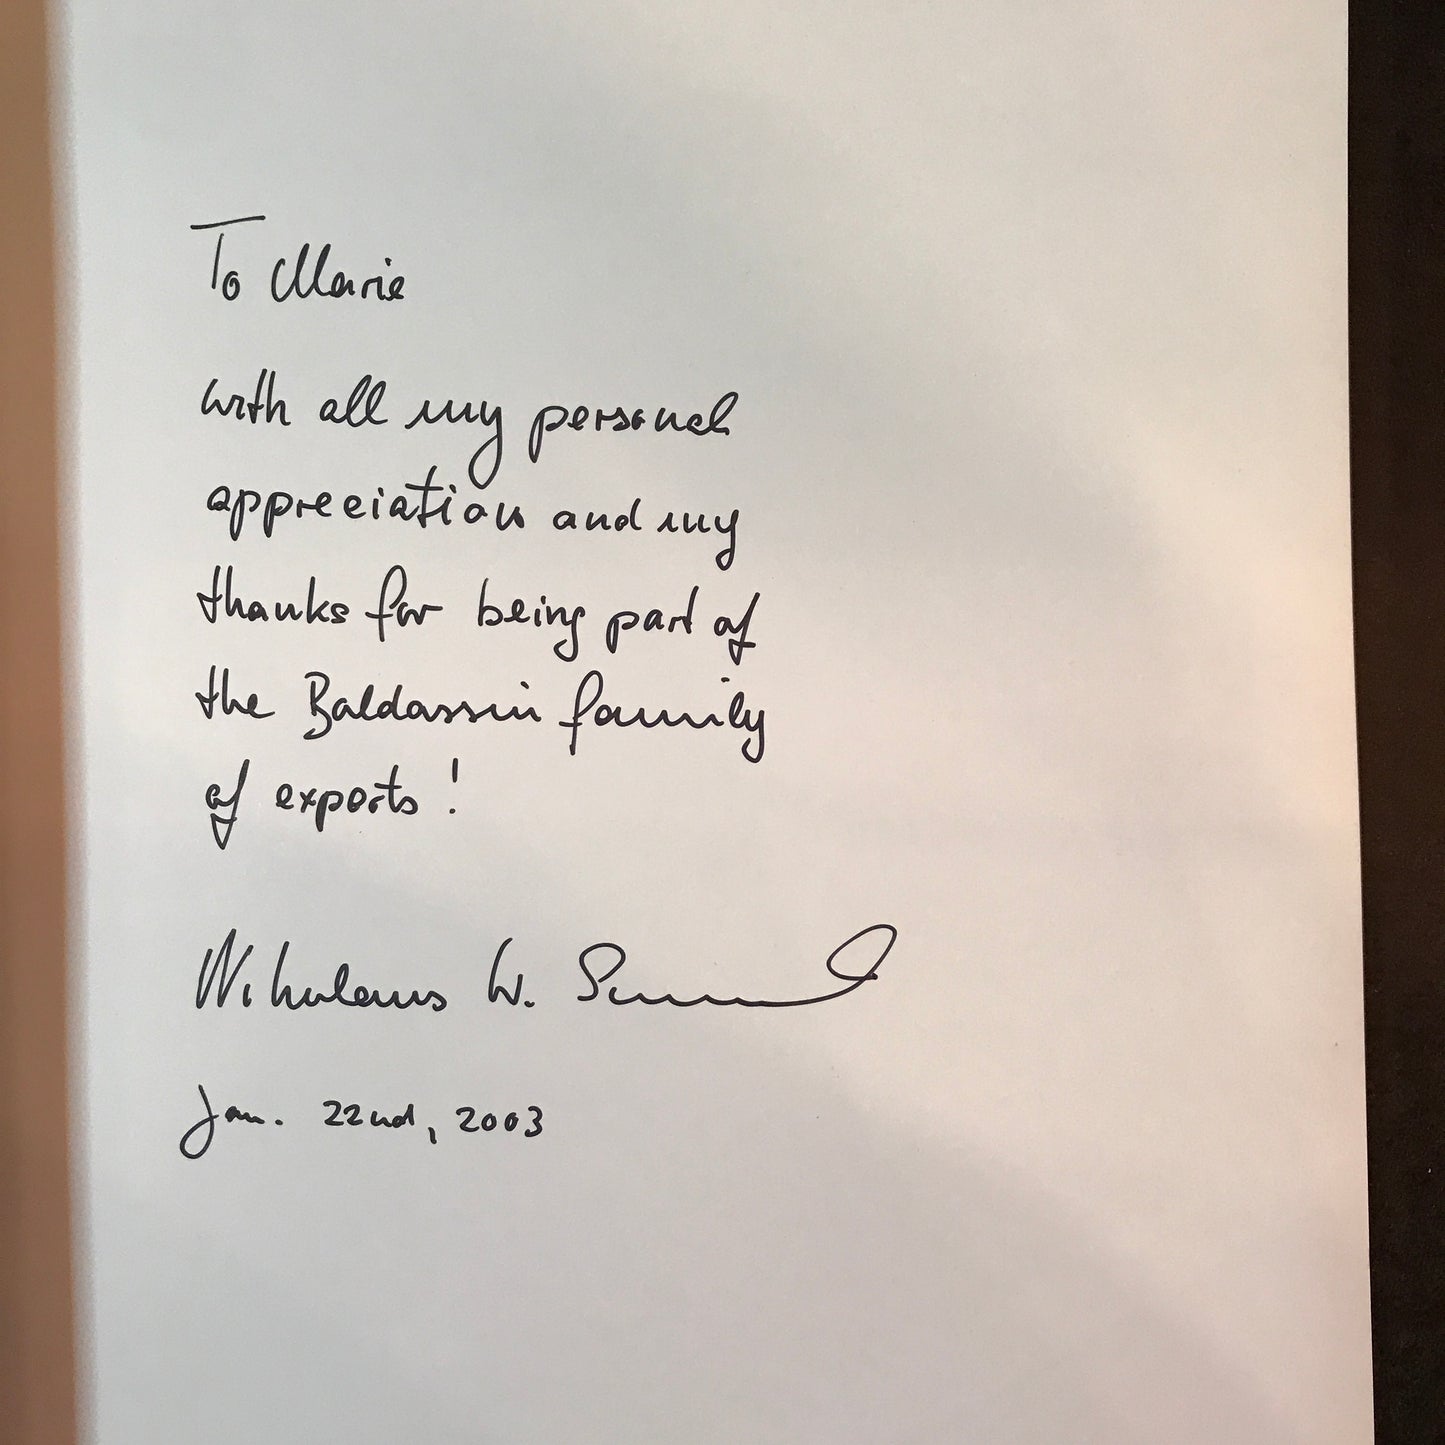 To Marie
with all my personal
appreciation and my
thanks for being part of
the Baldassin family
of experts!
Nikolaus W.
Jan. 22nd, 2003